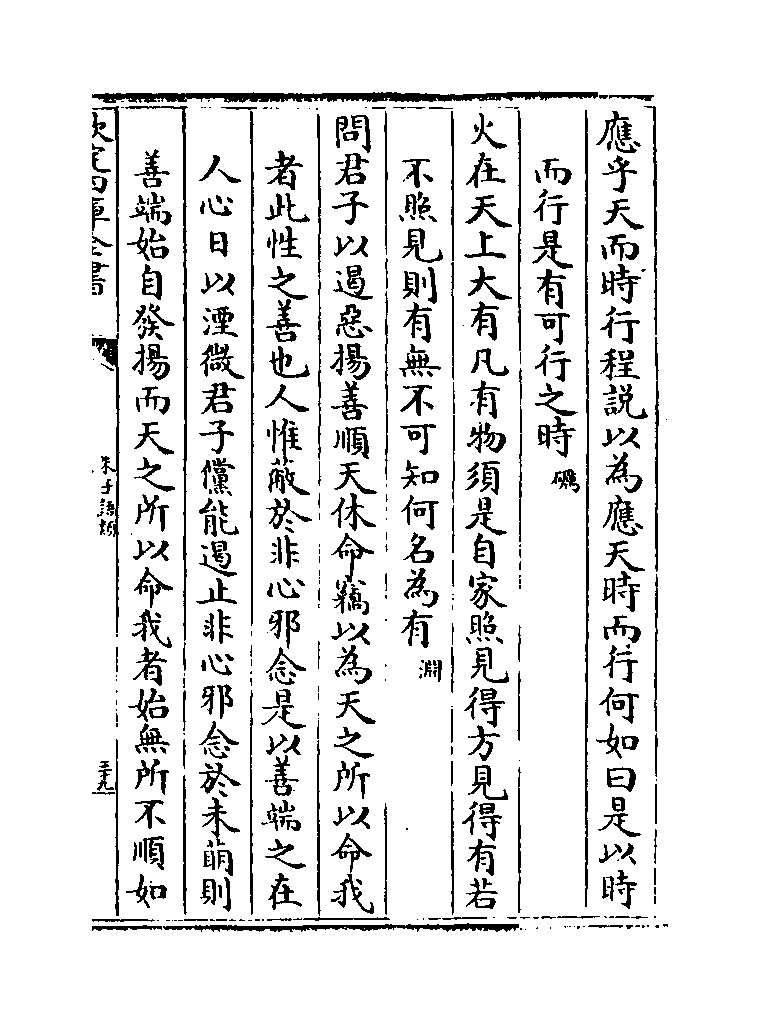 應乎天而時行程説以為應天時而行何如曰是以時
而行是有可行之時礪
火在天上大有凡有物須是自家照見得方見得有若
不照見則有無不可知何名為有淵
問君子以遏惡揚善順天休命竊以為天之所以命我
者此性之善也人惟蔽於非心邪念是以善端之在
人心日以湮微君子儻能遏止非心邪念於未萌則
善端始自發揚而天之所以命我者始無所不順如
欽定四庫全書
朱子語類
三十九